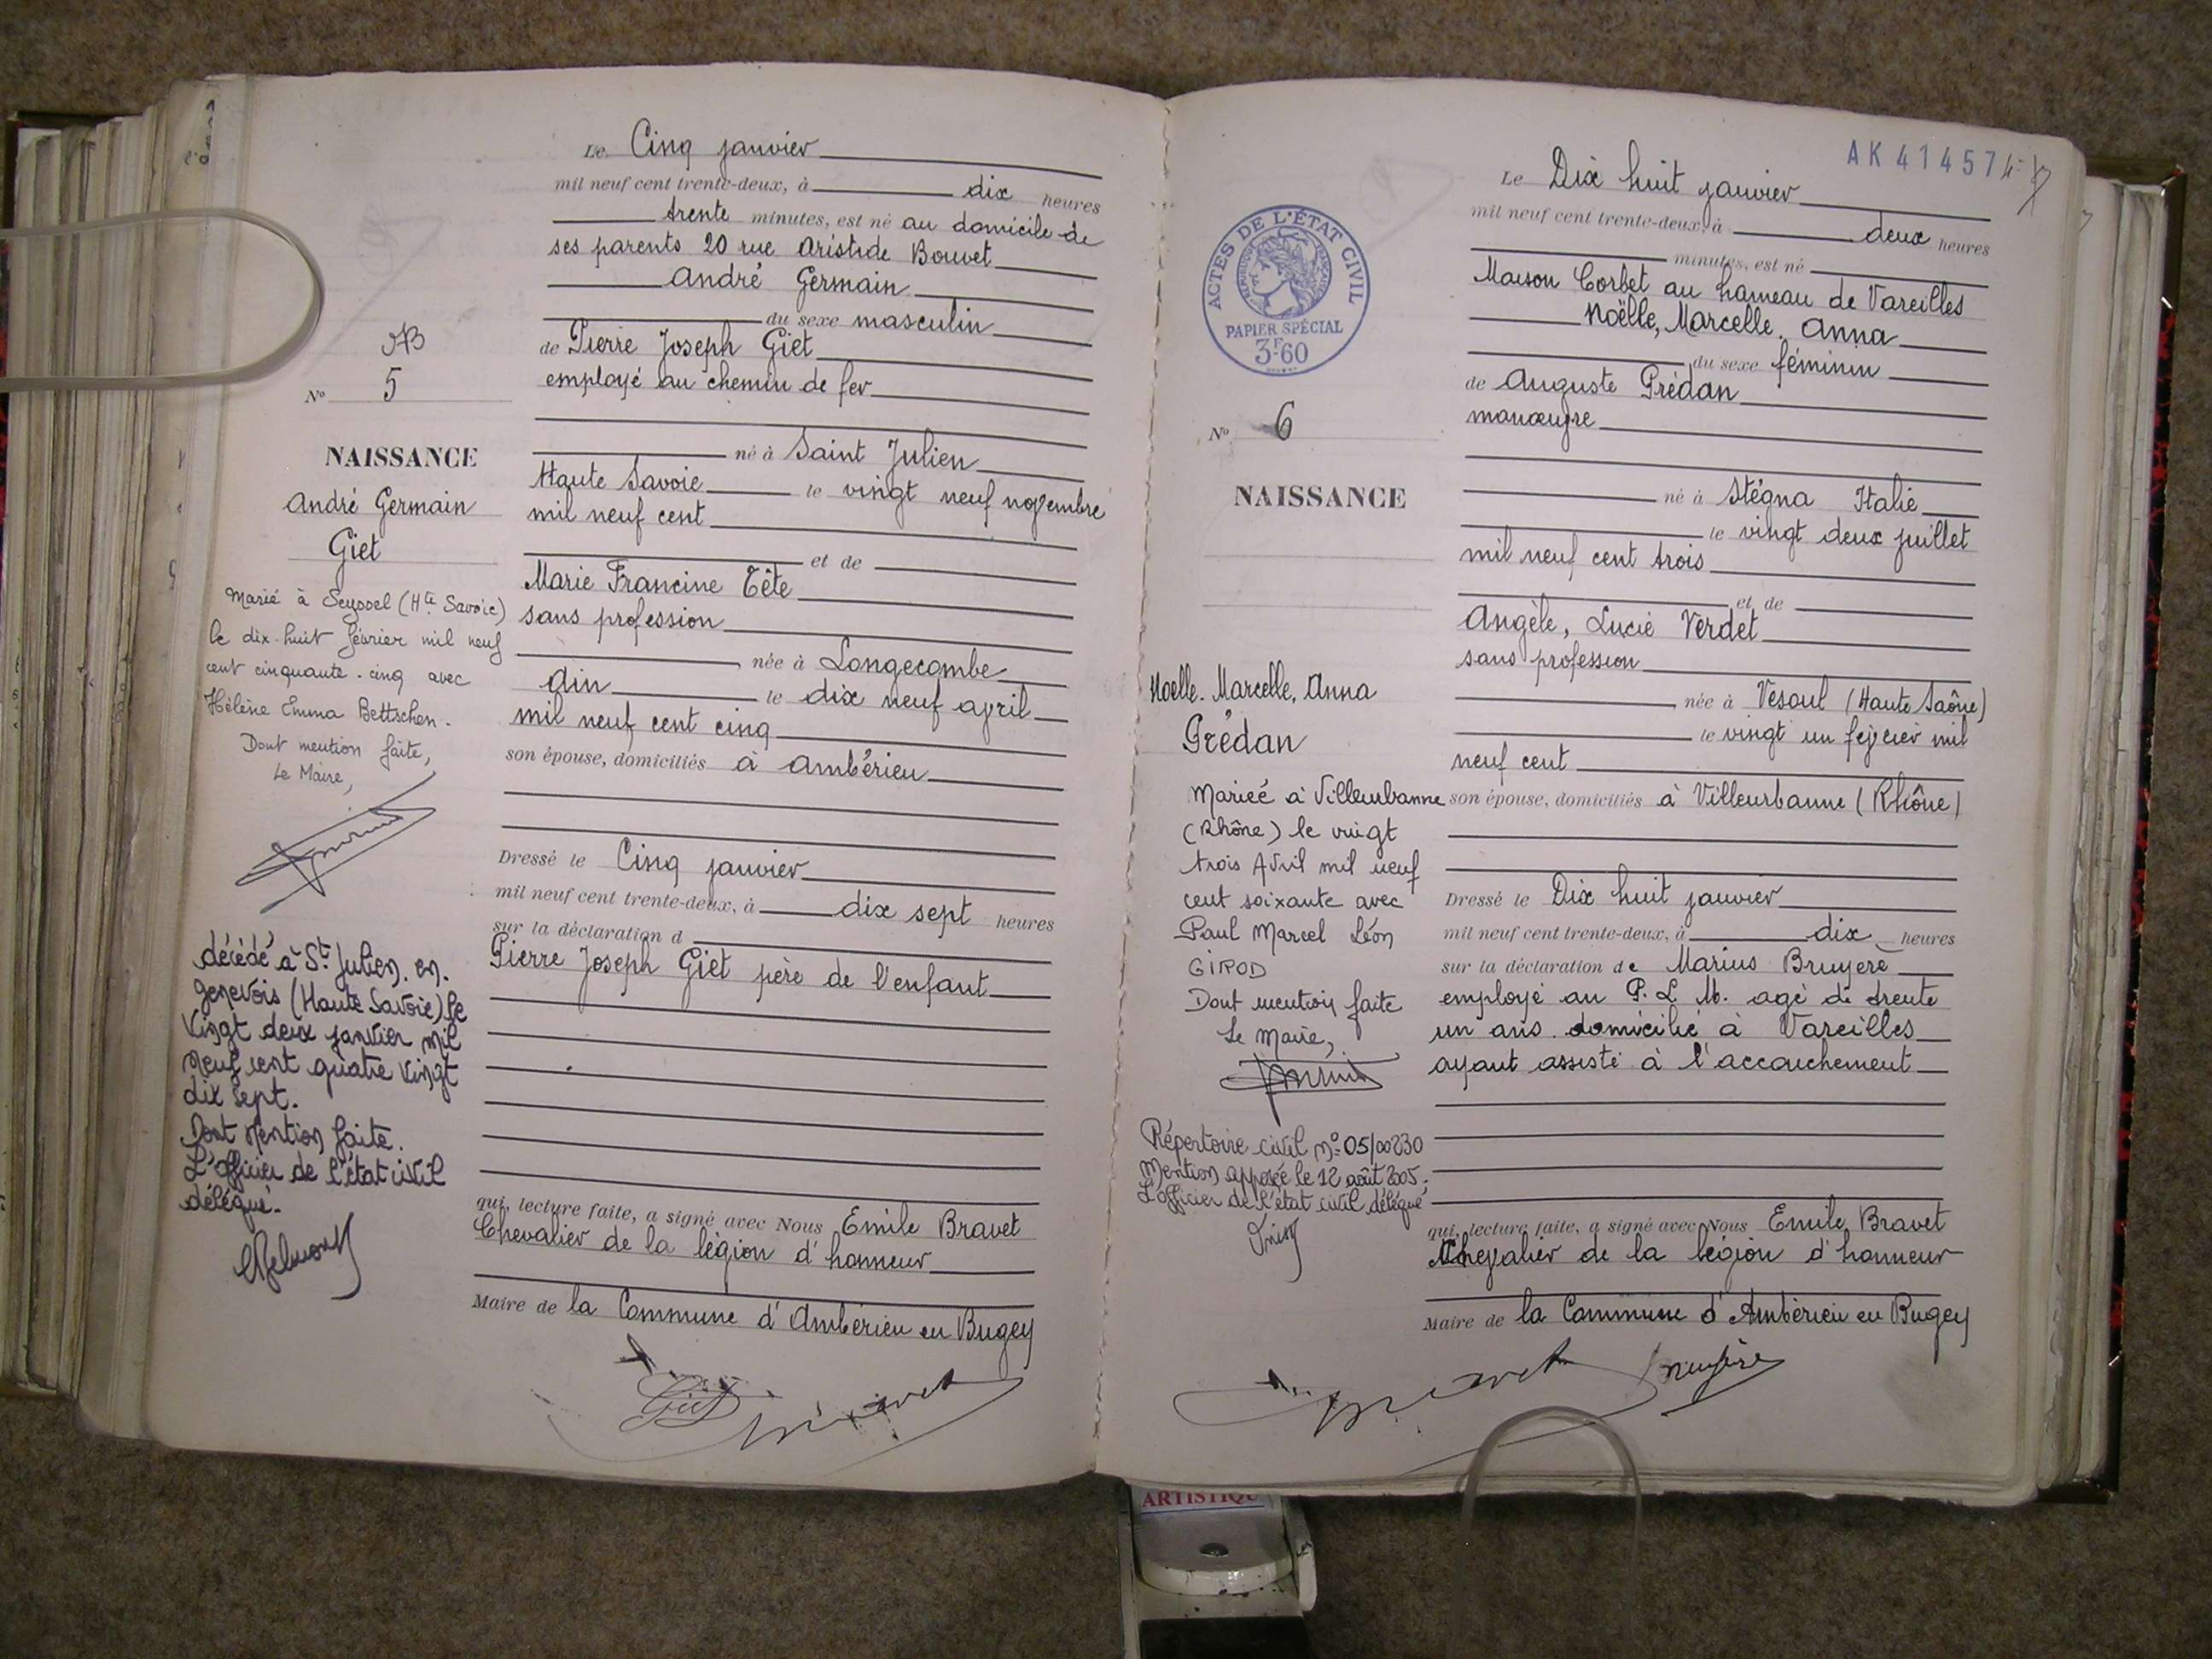 AB
N° 5
NAISSANCE
André Germain
Giet
Marié à Seyssel (Hte Savoie)
le dix-huit février mil neuf
cent cinquante-cinq avec
Hélène Emma Bettschen.
Dont mention faite,
Le Maire,
décédé à St Julien. en.
genevois (Haute Savoie) le
vingt deux janvier mil
neuf cent quatre vingt
dix sept.
Dont mention faite.
L'officier de l'état civil
délégué.
Le Cinq janvier
mil neuf cent trente-deux, à dix heures
trente minutes, est né au domicile de
ses parents 20 rue Aristide Bouvet
André Germain
du sexe masculin
de Pierre Joseph Giet
employé au chemin de fer
né à Saint Julien
Haute Savoie le vingt neuf novembre
mil neuf cent
et de
Marie Francine Tête
sans profession
née à Longecombe
Ain le dix neuf avril
mil neuf cent cinq
son épouse, domiciliés à Ambérieu
Dressé le Cinq janvier
mil neuf cent trente-deux, à dix sept heures
sur la déclaration d
Pierre Joseph Giet père de l'enfant
qui, lecture faite, a signé avec Nous Emile Bravet
Chevalier de la légion d'honneur
Maire de la Commune d'Ambérieu en Bugey
Giet Bravet
AK 41457
ACTES DE L'ÉTAT CIVIL
RÉPUBLIQUE FRANÇAISE
PAPIER SPÉCIAL
3F60
N° 6
NAISSANCE
Noëlle. Marcelle, Anna
Prédan
Mariée à Villeurbanne
(Rhône) le vingt
trois Avril mil neuf
cent soixante avec
Paul Marcel Léon
GIROD
Dont mention faite
Le Maire,
Répertoire civil n° 05/00230
Mention apposée le 12 août 2005.
L'officier de l'état civil délégué
Le Dix huit janvier
mil neuf cent trente-deux, à deux heures
minutes, est né
Maison Corbet au hameau de Vareilles
Noëlle, Marcelle. Anna
du sexe féminin
de Auguste Prédan
manœuvre
né à Stégna Italie
le vingt deux juillet
mil neuf cent trois
et de
Angèle, Lucie Verdet
sans profession
née à Vesoul (Haute Saône)
le vingt un février mil
neuf cent
son épouse, domiciliés à Villeurbanne (Rhône)
Dressé le Dix huit janvier
mil neuf cent trente-deux, à dix heures
sur la déclaration de Marius Bruyere
employé au P. L. M. agé de trente
un ans domicilié à Vareilles
ayant assisté à l'accouchement
qui, lecture faite, a signé avec Nous Emile Bravet
Chevalier de la légion d'honneur
Maire de la Commune d'Ambérieu en Bugey
Bravet Bruyère
ARTISTIQU